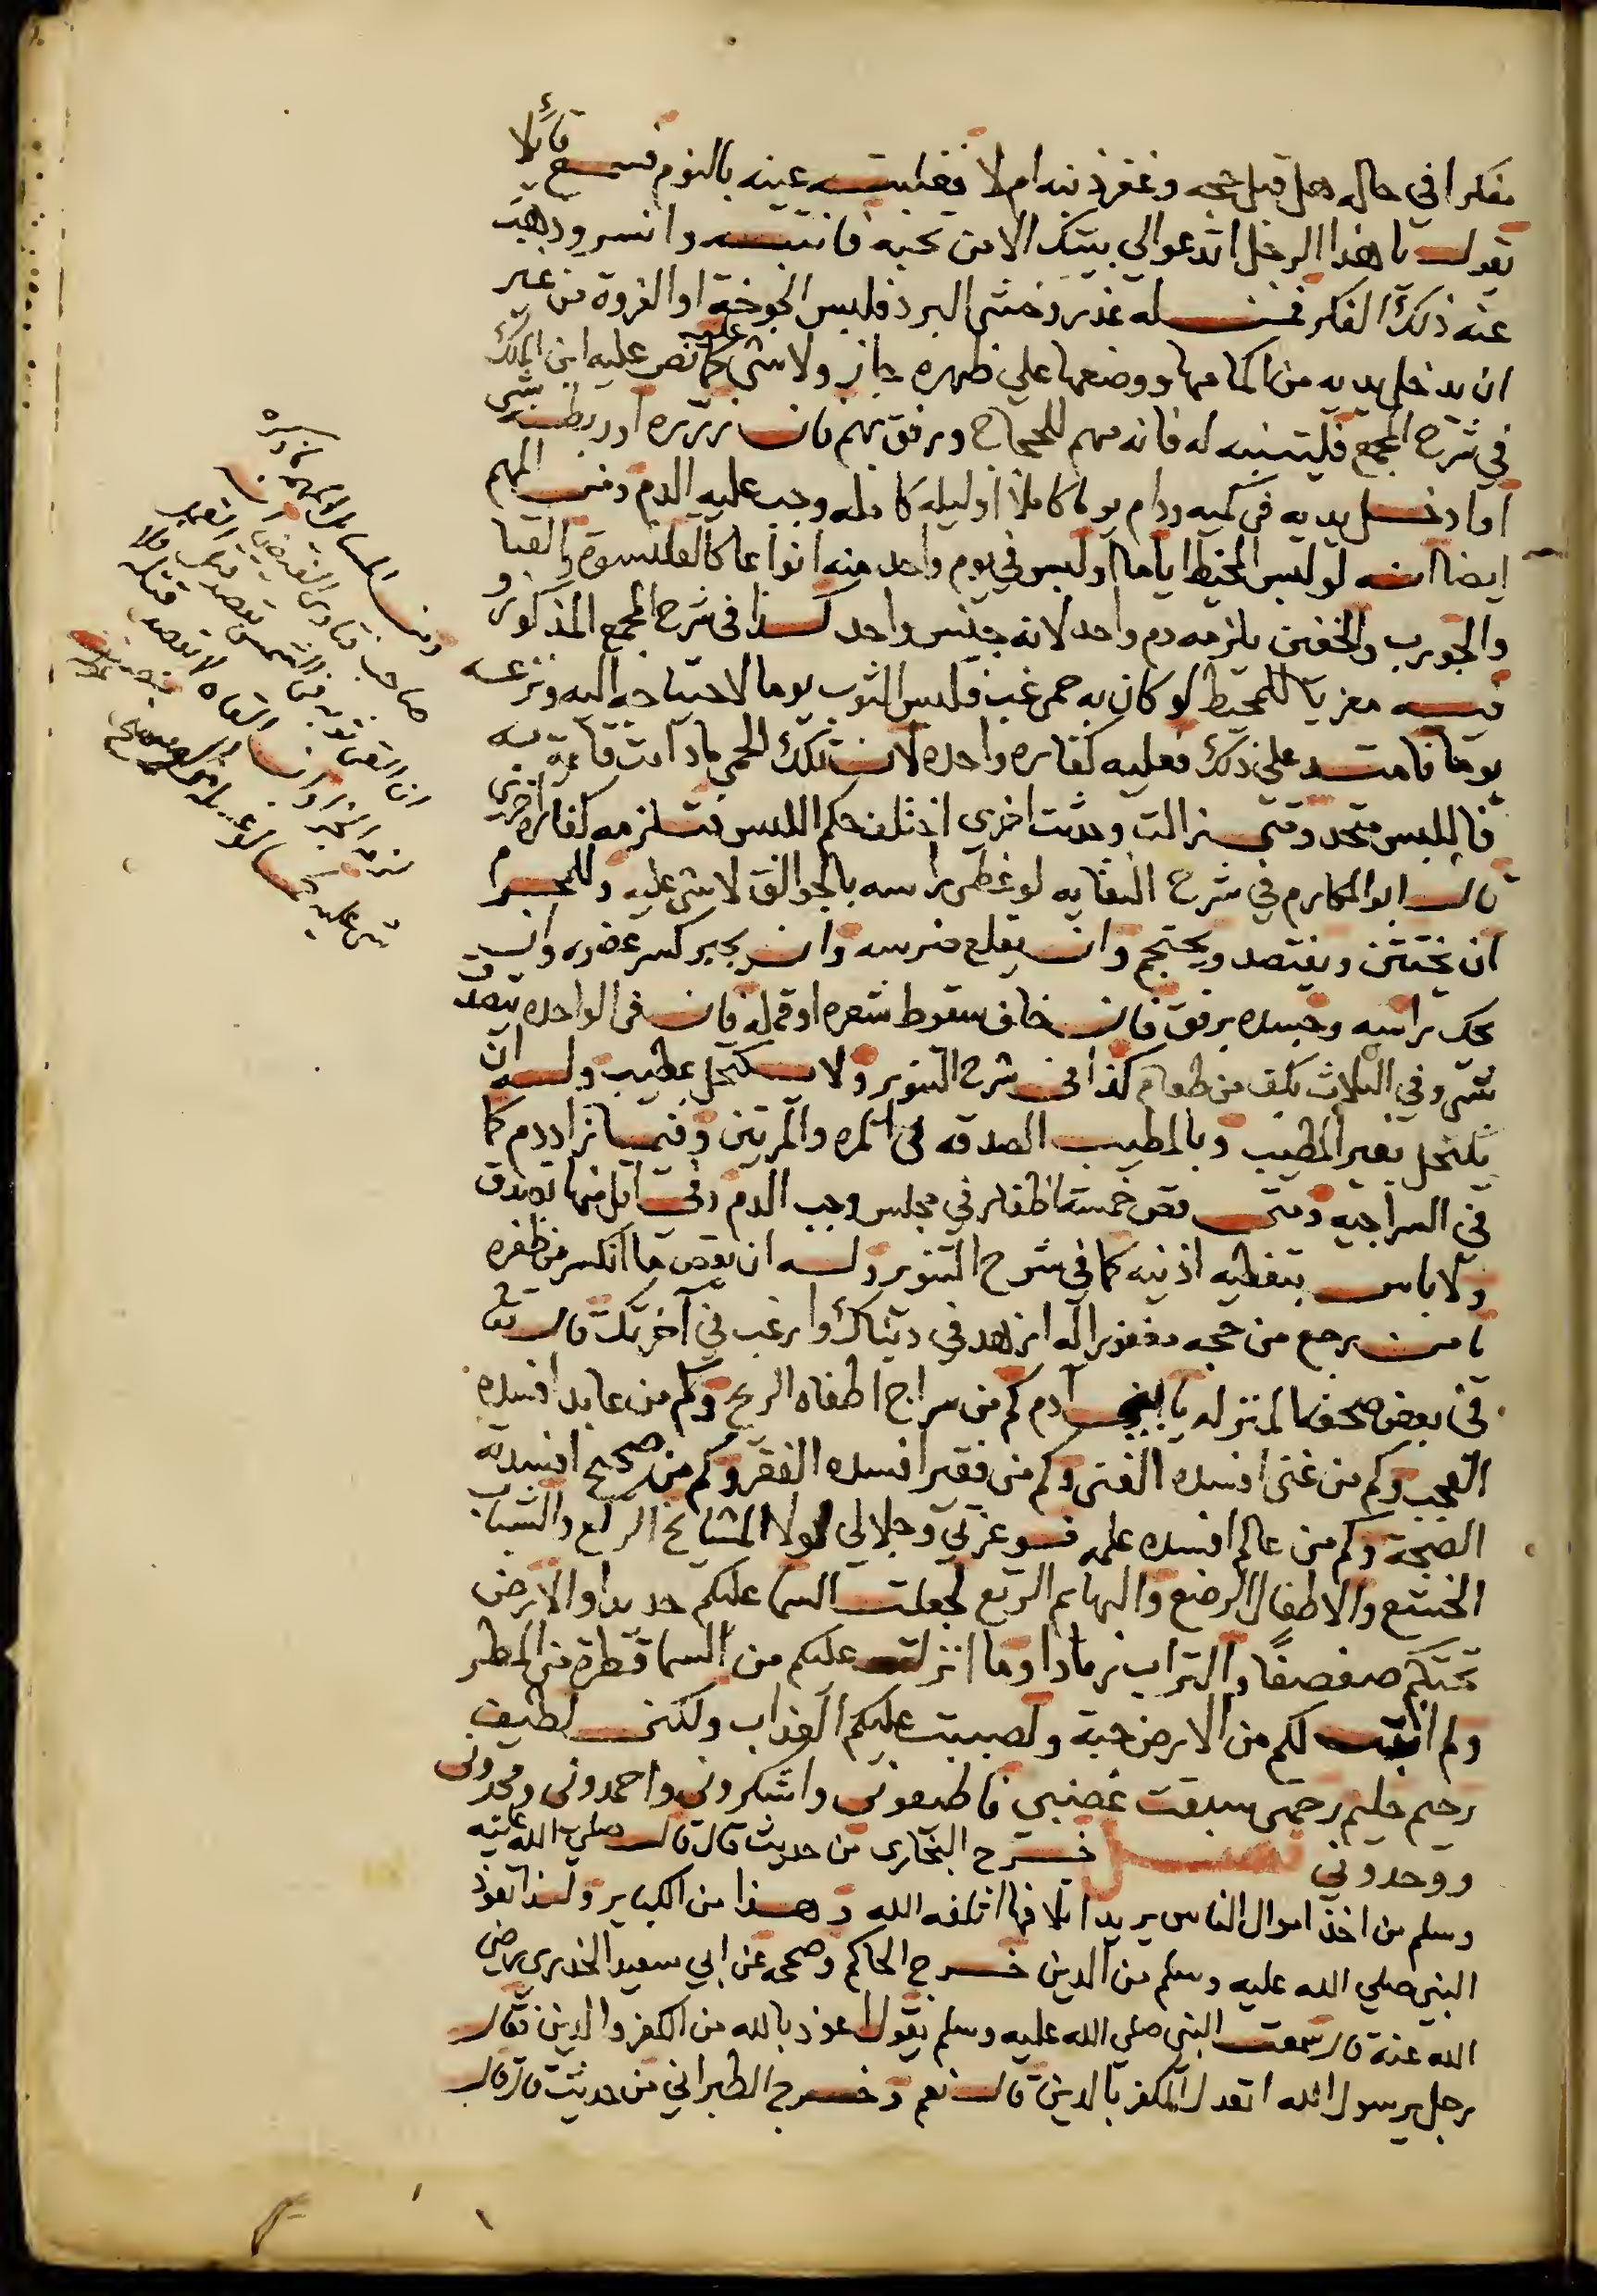 مفكرا في حاله هل قبل حجه وغفر ذنبه ام لا فغلبته عينه بالنوم فسمع قائلا
يقول يا هذا الرجل اتدعو الي بيتك الا من تحبه فانتبه وانسر وذهب
عنه ذلك الفكر فمن له عذر وخشي البرد فلبس الجوخة او الفروة من غير
ان يدخل يديه من اكمامها ووضعها علي ظهره جاز ولا شي عليه كما نص عليه ابن الملك
في شرح المجمع فليتنبه له فانه مهم للحجاج ورفق بهم فان زرره او ربطه بشي
او ادخل يديه في كميه ودام يوما كاملا او ليله كامله وجب عليه الدم ومن المهم
ايضا انه لو لبس المخيط اياما او لبس في يوم واحد منه انواعا كالقلنسوة والقبا
والجورب والخفين يلزمه دم واحد لانه جنس واحد كذا في شرح المجمع المذكور و
فيه معزيا للمحيط لو كان به حمي غب فلبس الثوب يوما لاحتياجه اليه ونزعه
يوما فامتد علي ذلك فعليه كفاره واحده لان تلك الحمي ما دامت قايمة به
فاللبس متحد ومتي زالت وحدثت اخري اختلف حكم اللبس فتلزمه كفاره اخري
قال ابو المكارم في شرح النقايه لو غطي راسه بالجوالق لا شي عليه وللمحرم
ان يختتن ويفتصد ويحتجم وان يقلع ضرسه وان يجبر كسر عضوه وان
يحك راسه وجسده برفق فان خاف سقوط شعره او قمله فان في الواحده يتصدق
بشي وفي الثلاث بكف من طعام كذا في شرح التنوير ولا يكتحل بمطيب وله ان
يكتحل بغير المطيب وبالمطيب الصدقه في المره والمرتين وفيما زاد دم كما
في السراجيه ومتي قص خمسة اظفار في مجلس وجب الدم وفي اقل منها تصدق
ولا باس بتغطيه اذنيه كما في شرح التنوير وله ان يقص ما انكسر من ظفره
يا من رجع من حجه مغفورا له ازهد في دنياك وارغب في آخرتك قال تعا
في بعض صحفه المنزله يا ابن آدم كم من سراج اطفاه الريح وكم من عابد افسده
العجب وكم من غني افسده الغني وكم من فقير افسده الفقر وكم من صحيح افسدته
الصحة وكم من عالم افسده علمه فوعزتي وجلالي لولا المشايخ الركع والشباب
الخشع والاطفال الرضع والبهايم الرتع لجعلت السما عليكم حديدا والارض
تحتكم صفصفا والتراب رمادا وما انزلت عليكم من السما قطرة من المطر
ولم انبت لكم من الارض حبة ولصببت عليكم العذاب ولكني لطيف
رحيم حليم رحمتي سبقت غضبي فاطيعوني واشكروني واحمدوني ومجدوني
ووحدوني فصل خرج البخاري من حديث قال قال صلي الله عليه
وسلم من اخذ اموال الناس يريد اتلافها اتلفه الله وهذا من الكباير ولذا تعوذ
النبي صلي الله عليه وسلم من الدين خرج الحاكم وصححه عن ابي سعيد الخدري رضي
الله عنه قال سمعت النبي صلي الله عليه وسلم يقول اعوذ بالله من الكفر والدين فقال
رجل يرسول الله اتعدل الكفر بالدين قال نعم وخرج الطبراني من حديث قال قال
ومن المسايل المهمة ما ذكره
صاحب فتاوي
ان القي ثوبه في الشمس بقصد قتل القمل